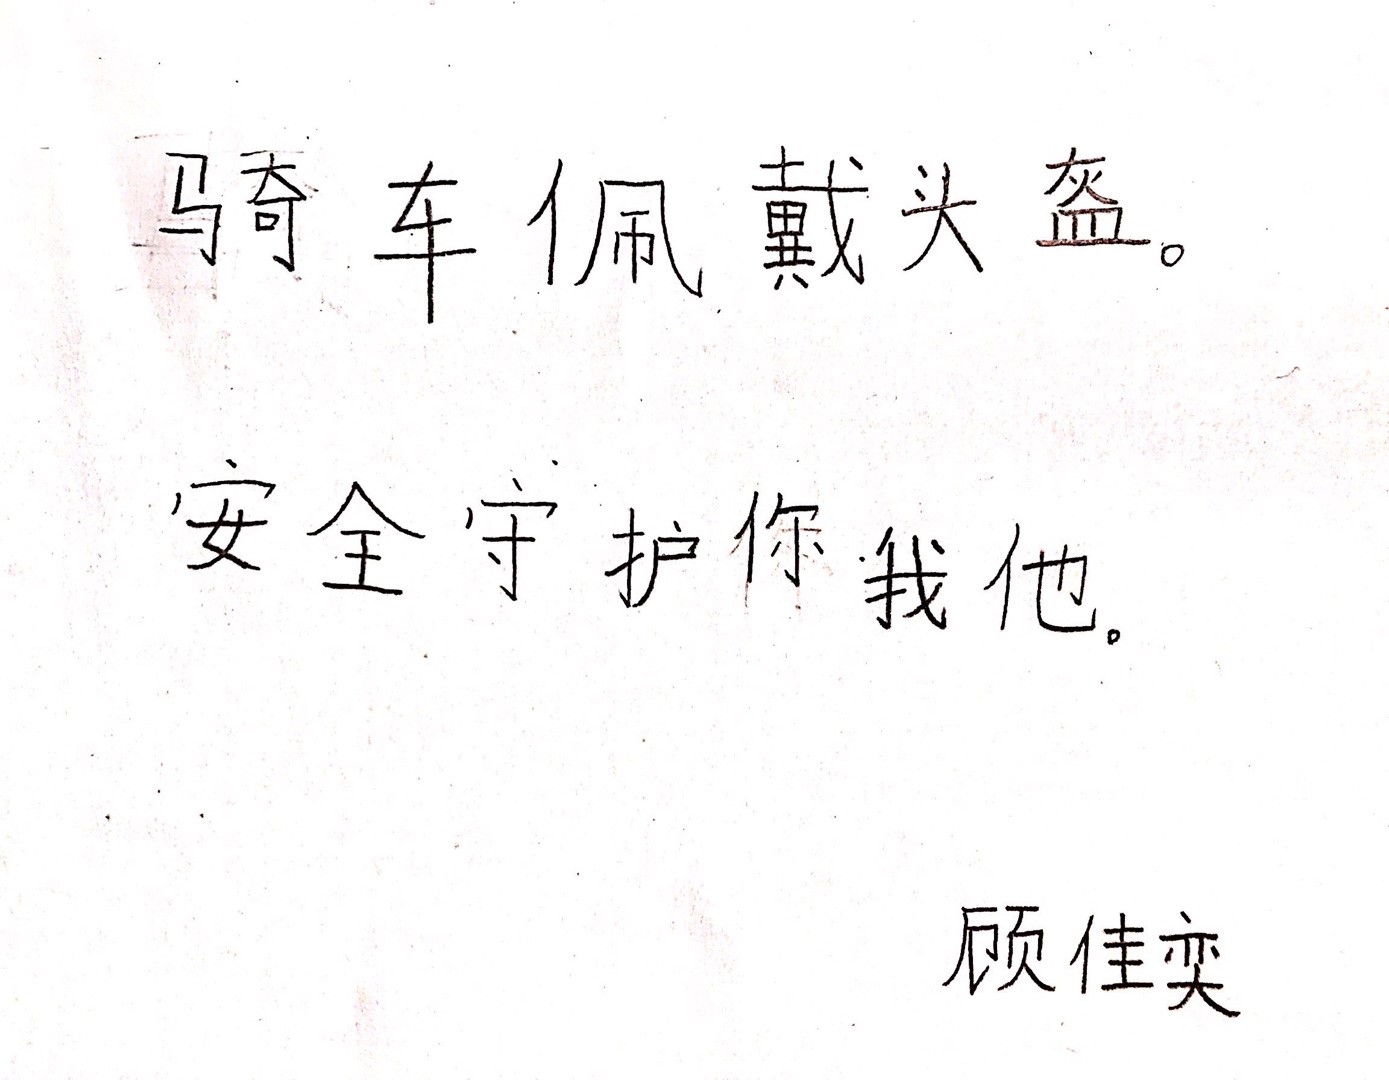 骑车佩戴头盔。
安全守护你我他。
顾佳奕